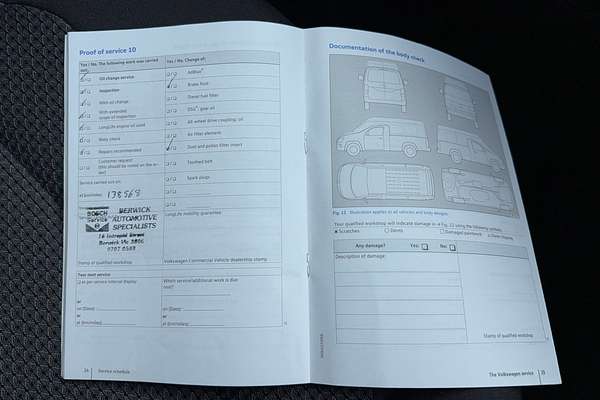 Proof of service 10
Yes / No, The following work was carried out:
Yes / No, Change of:
Oil change service
AdBlue®
Inspection
Brake fluid
With oil change
Diesel fuel filter
With extended scope of inspection
DSG®, gear oil
LongLife engine oil used
All-wheel drive coupling: oil
Body check
Air filter element
Repairs recommended
Dust and pollen filter insert
Customer request
(this should be noted on the order)
Toothed belt
Spark plugs
Service carried out on:
at (km/miles): 138568
LongLife mobility guarantee
BOSCH
Service
BERWICK
AUTOMOTIVE
SPECIALISTS
Berwick Vic 3806
9707 0588
Stamp of qualified workshop
Volkswagen Commercial Vehicle dealership stamp
Your next service:
as per service interval display
Which service/additional work is due next?
or
on (Date):
or
at (km/miles):
on (Date):
or
at (km/miles):
24 Service schedule
Documentation of the body check
Fig. 12 Illustration applies to all vehicles and body designs.
Your qualified workshop will indicate damage in Fig. 12 using the following symbols:
Scratches
Dents
Damaged paintwork
Stone chipping
Any damage?
Yes:
No:
Description of damage:
Stamp of qualified workshop
The Volkswagen service 25